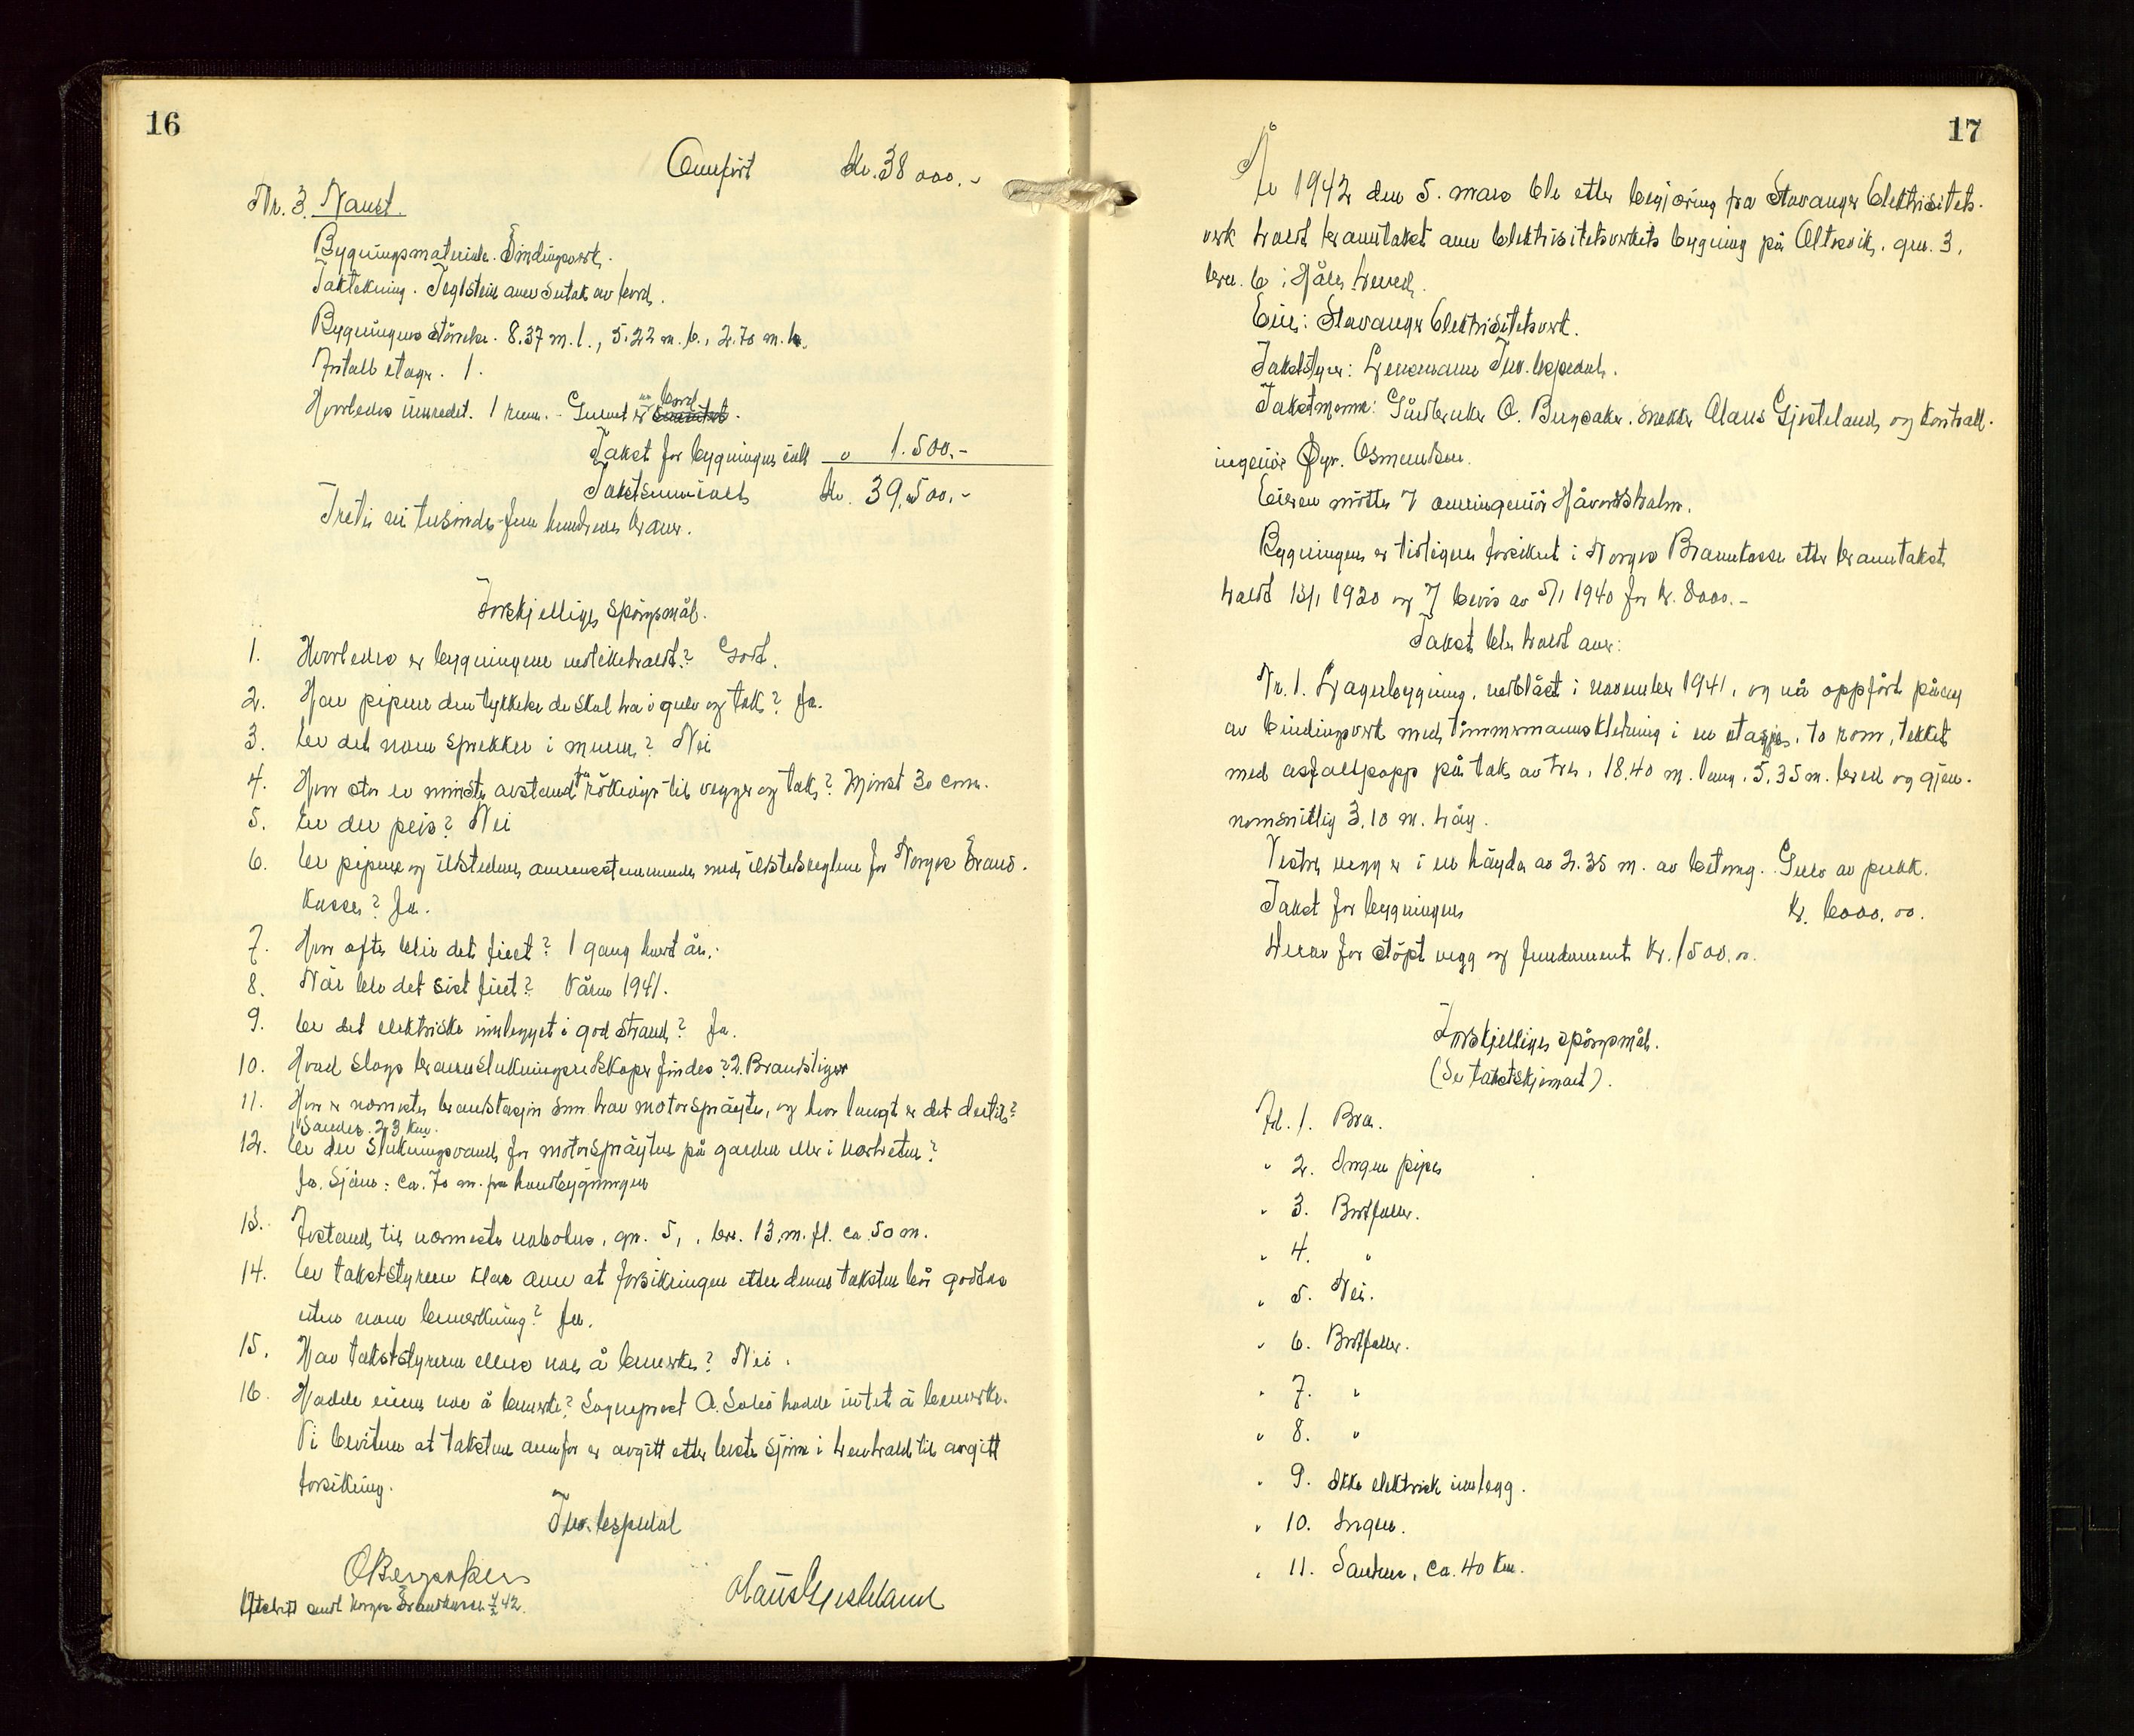 16
Overført Kr. 38 000.-
Nr. 3. Naust.
Bygningsmateriale. Bindingsverk.
Taktekning. Teglstein over sutak av bord.
Bygningens størrelse. 8.37 m. l., 5.22 m. b., 2.70 m. h.
Antall etager. 1.
Hvorledes innredet. 1 rum. - Gulvet er av bord.
Takst for bygningen ialt " 1.500.-
Takstsum ialt Kr. 39.500.-
Tretti ni tusinde-fem hundrede kroner.
Forskjellige spørgsmål.
1. Hvorledes er bygningene vedlikeholdt? Godt.
2. Har pipene den tykkelse de skal ha i gulv og tak? Ja.
3. Er det noen sprekker i muren? Nei
4. Hvor stor er minste avstand fra røkrør til vegger og tak? Minst 30 cm.
5. Er der peis? Nei
6. Er pipene og ildstedene overensstemmende med ildstedsreglene for Norges Brand-
kasse? Ja.
7. Hvor ofte blir det feiet? 1 gang hvert år.
8. Når ble det sist feiet? Våren 1941.
9. Er det elektriske innlegget i god stand? Ja.
10. Hvad slags brannslukningsredskaper findes? 2 Brandstiger
11. Hvor er nærmeste brandstasjon som har motorsprøyte, og hvor langt er det dertil?
Sandnes. 23 km.
12. Er der slukningsvand for motorsprøyten på gården eller i nærheten?
Ja. Sjøen: ca. 70 m. fra hovedbygningen
13. Avstand til nærmeste nabohus, gr. 5, br. 13, m. fl. ca. 50 m.
14. Er takststyreren klar over at forsikringen etter denne taksten bør godtas
uten noen bemerkning? Ja.
15. Har takststyreren ellers noe å bemerke? Nei.
16. Hadde eieren noe å bemerke? Sogneprest A. Soleö hadde intet å bemerke.
Vi bevitner at taksten ovenfor er avgitt etter beste skjønn i henhold til avgitt
forsikring.
Tor. Espedal
O Bergsaker
Olaus Gjesteland
Utskrift sendt Norges Brandkasse 4/2 42.
17
År 1942 den 5. mars ble etter begjæring fra Stavanger Elektrisitets-
verk holdt branntakst over Elektrisitetsverkets bygning på Oltesvik, gnr. 3,
bnr. 6 i Høle herred.
Eier: Stavanger Elektrisitetsverk.
Takststyrer: Lensmann Tor. Espedal.
Takstmenn: Gårdbruker O. Bergsaker, snekker Olaus Gjesteland, og kontroll-
ingeniør Øyv. Osmundsen.
Eieren møtte ved overingeniør Håvardsholm.
Bygningen er tidligere forsikret i Norges Brannkasse etter branntakst
holdt 13/1 1920 og ved bevis av 5/1 1940 for kr. 8000.-
Takst ble holdt over:
Nr. 1. Lagerbygning, nedblåst i november 1941, og nå oppført påny
av bindingsverk med tømmermannskledning i en etasje, to rom, tekket
med asfaltpapp på tak av tre, 18.40 m. lang, 5.35 m. bred og gjen-
nomsnitlig 3.10 m. høy.
Vestre vegg er i en høyde av 2.35 m. av betong. Gulv av pukk.
Takst for bygningen kr. 6000.00.
Herav for støpt vegg og fundament kr. 1500.00.
Forskjellige spørsmål.
(Se takstskjemaet).
Ad. 1. Bra.
" 2. Ingen pipe
" 3. Bortfaller.
" 4. "
" 5. Nei.
" 6. Bortfaller.
" 7. "
" 8. "
" 9. Ikke elektrisk innlegg.
" 10. Ingen.
" 11. Sandnes, ca. 40 km.